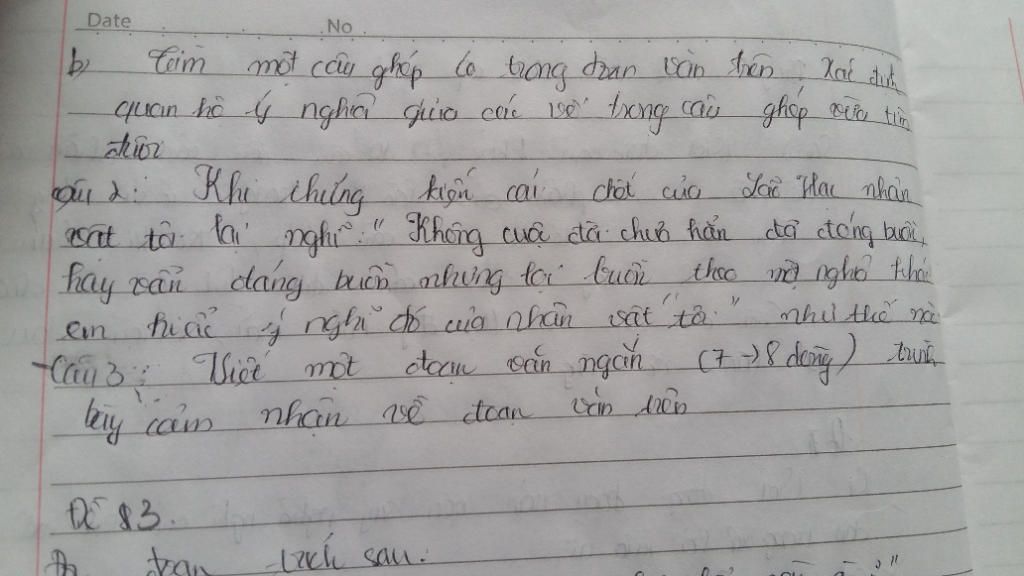 Date No
b, Tìm một câu ghép có trong đoạn văn trên. Xác định
quan hệ ý nghĩa giữa các vế trong câu ghép vừa tìm
được
Câu 2: Khi chứng kiến cái chết của Lão Hạc nhân
vật tôi lại nghĩ: "Không cuộc đời chưa hẳn đã đáng buồn,
hay vẫn đáng buồn nhưng lại buồn theo một nghĩa khác
em hiểu ý nghĩ đó của nhân vật "tôi" như thế nà
Câu 3: Viết một đoạn văn ngắn (7→8 dòng) trình
bày cảm nhận về đoạn văn trên
Đề 83.
đoạn trích sau: